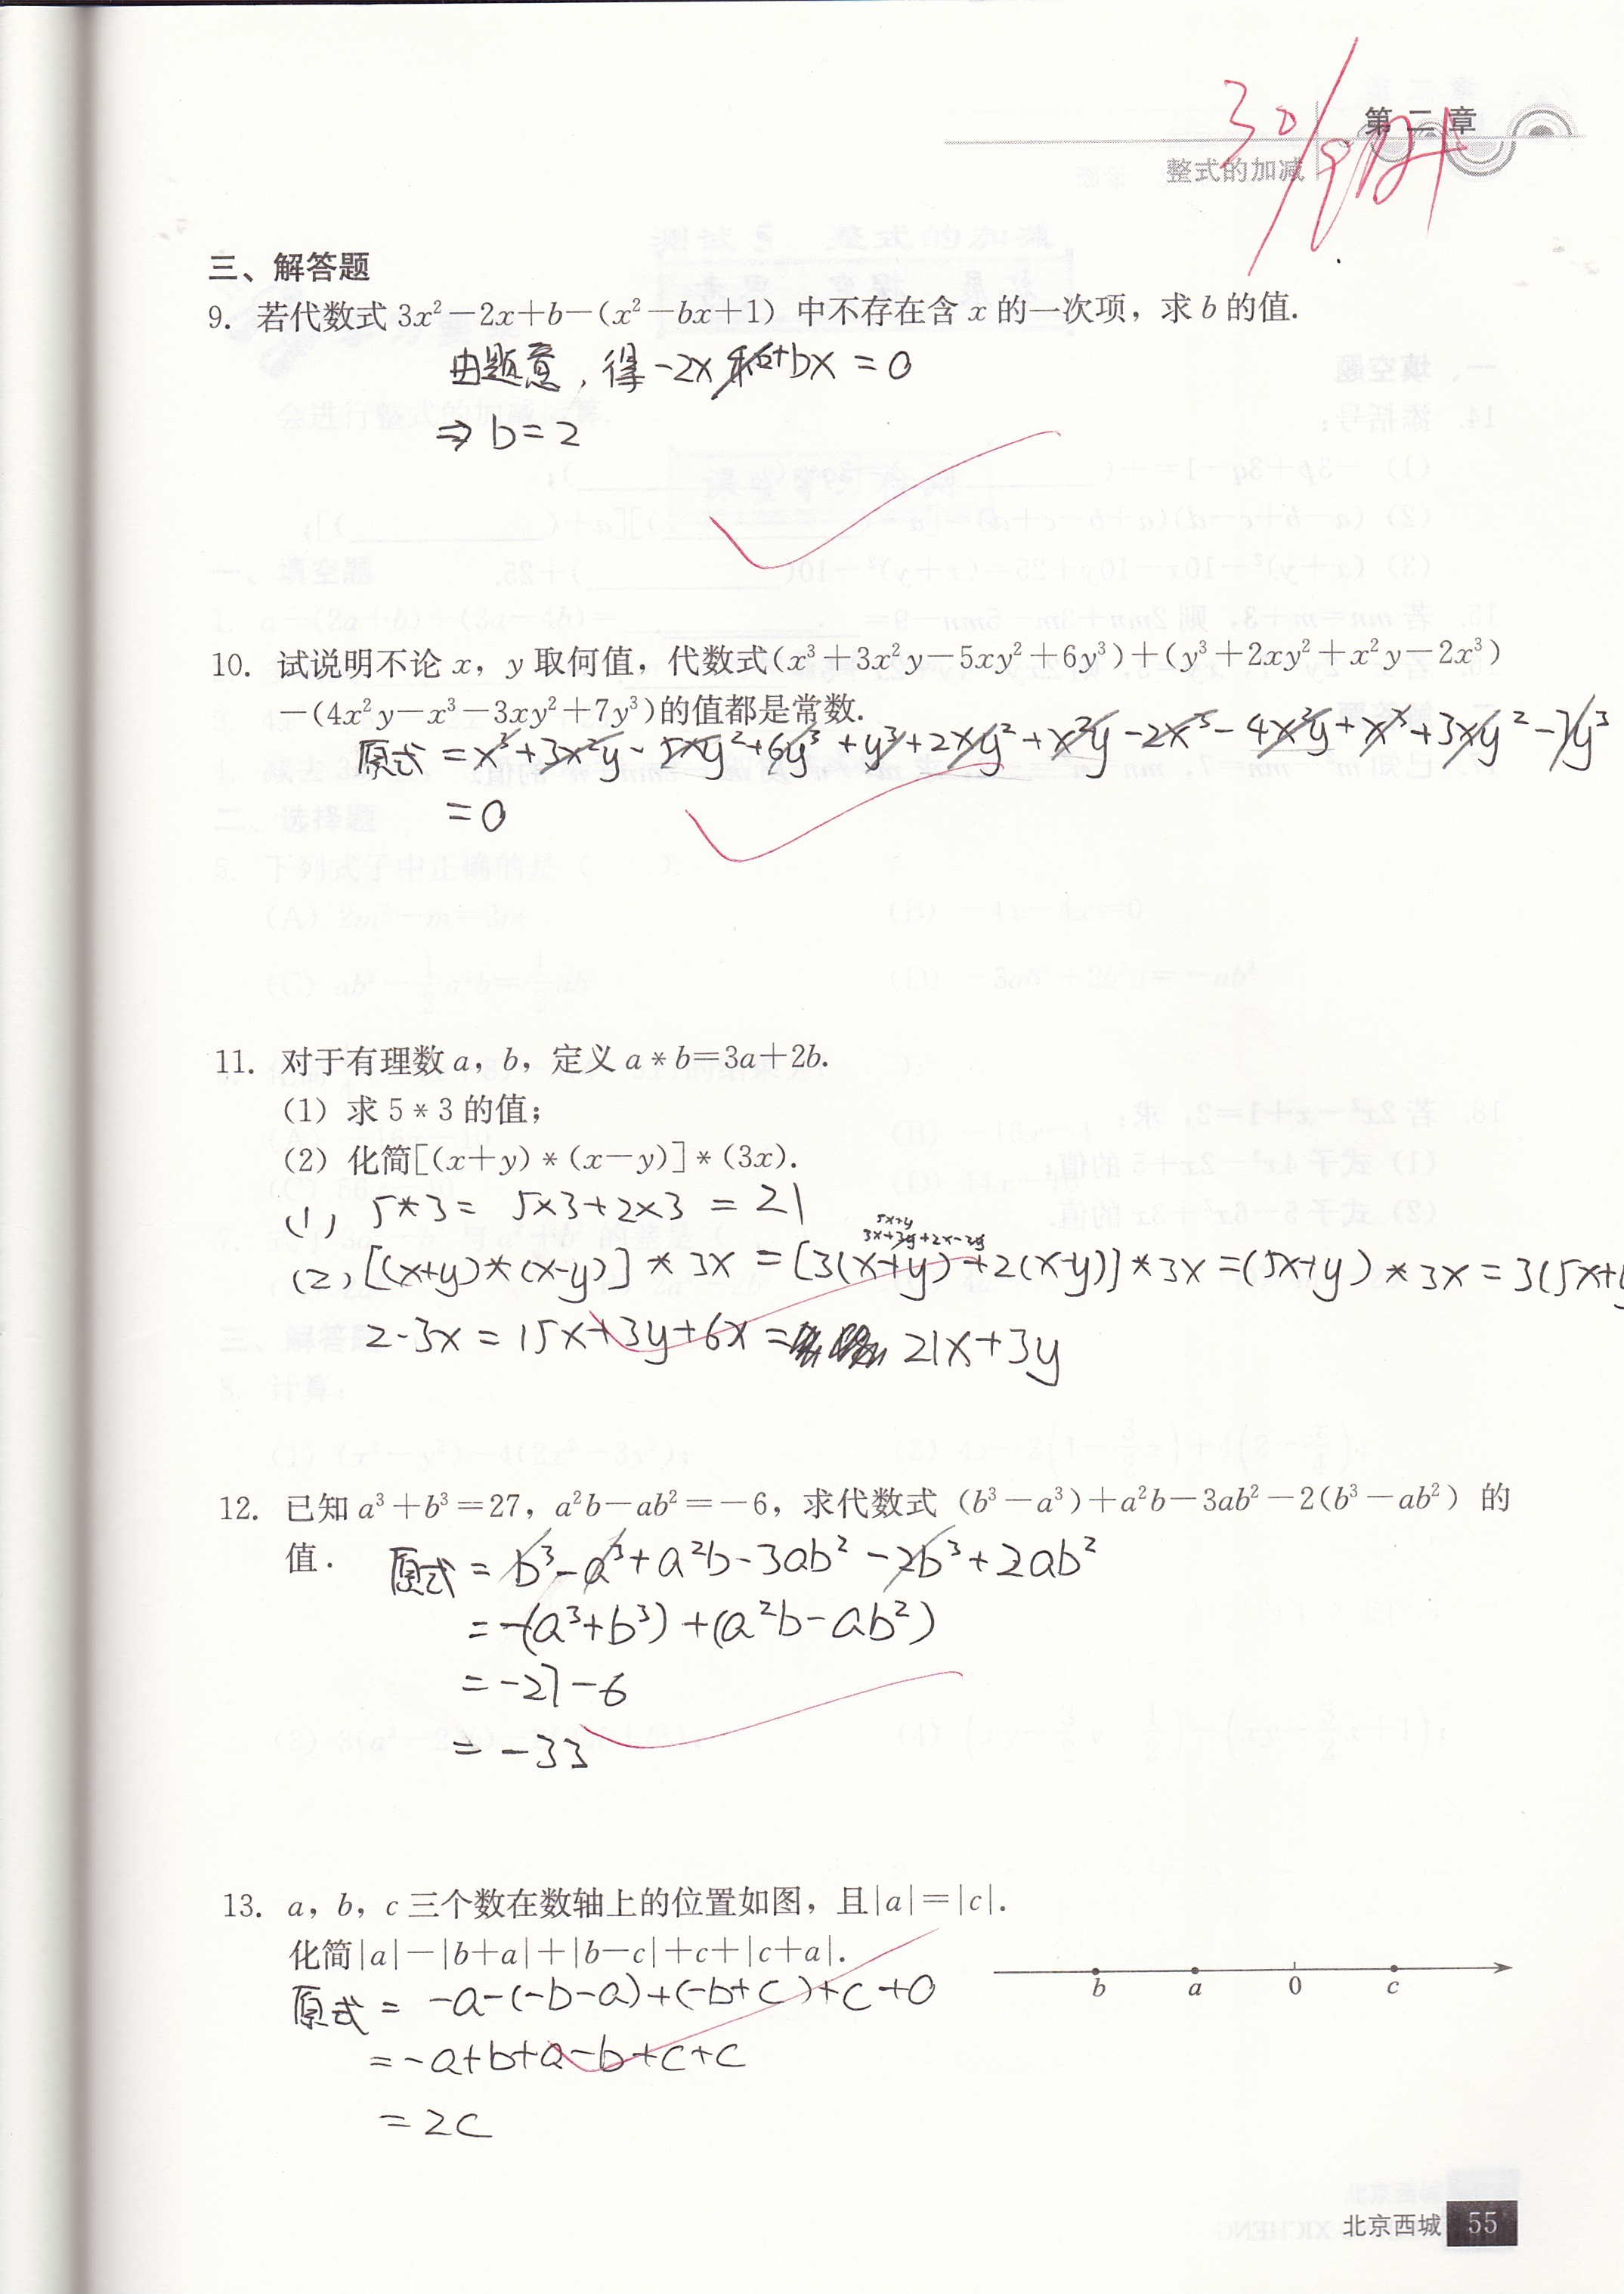 第二章
整式的加减
30/
三、解答题
9. 若代数式 3x²-2x+b-(x²-bx+1) 中不存在含 x 的一次项，求 b 的值.
由题意，得 -2x +bx = 0
⇒ b = 2
10. 试说明不论 x，y 取何值，代数式(x³+3x²y-5xy²+6y³)+(y³+2xy²+x²y-2x³)
-(4x²y-x³-3xy²+7y³)的值都是常数.
原式 = x³+3x²y-5xy²+6y³+y³+2xy²+x²y-2x³-4x²y+x³+3xy²-7y³
= 0
11. 对于有理数 a，b，定义 a*b=3a+2b.
(1) 求 5*3 的值；
(2) 化简[(x+y)*(x-y)]*(3x).
(1) 5*3 = 5×3+2×3 = 21
5x+y
3x+3y+2x-2y
(2) [(x+y)*(x-y)]*3x = [3(x+y)+2(x-y)]*3x = (5x+y)*3x = 3(5x+y
2·3x = 15x+3y+6x = 21x+3y
12. 已知 a³+b³=27，a²b-ab²=-6，求代数式 (b³-a³)+a²b-3ab²-2(b³-ab²) 的
值.
原式 = b³-a³+a²b-3ab²-2b³+2ab²
= -(a³+b³)+(a²b-ab²)
= -27-6
= -33
13. a，b，c 三个数在数轴上的位置如图，且|a|=|c|.
化简|a|-|b+a|+|b-c|+c+|c+a|.
b a 0 c
原式 = -a-(-b-a)+(-b+c)+c+0
= -a+b+a-b+c+c
= 2c
北京西城 55